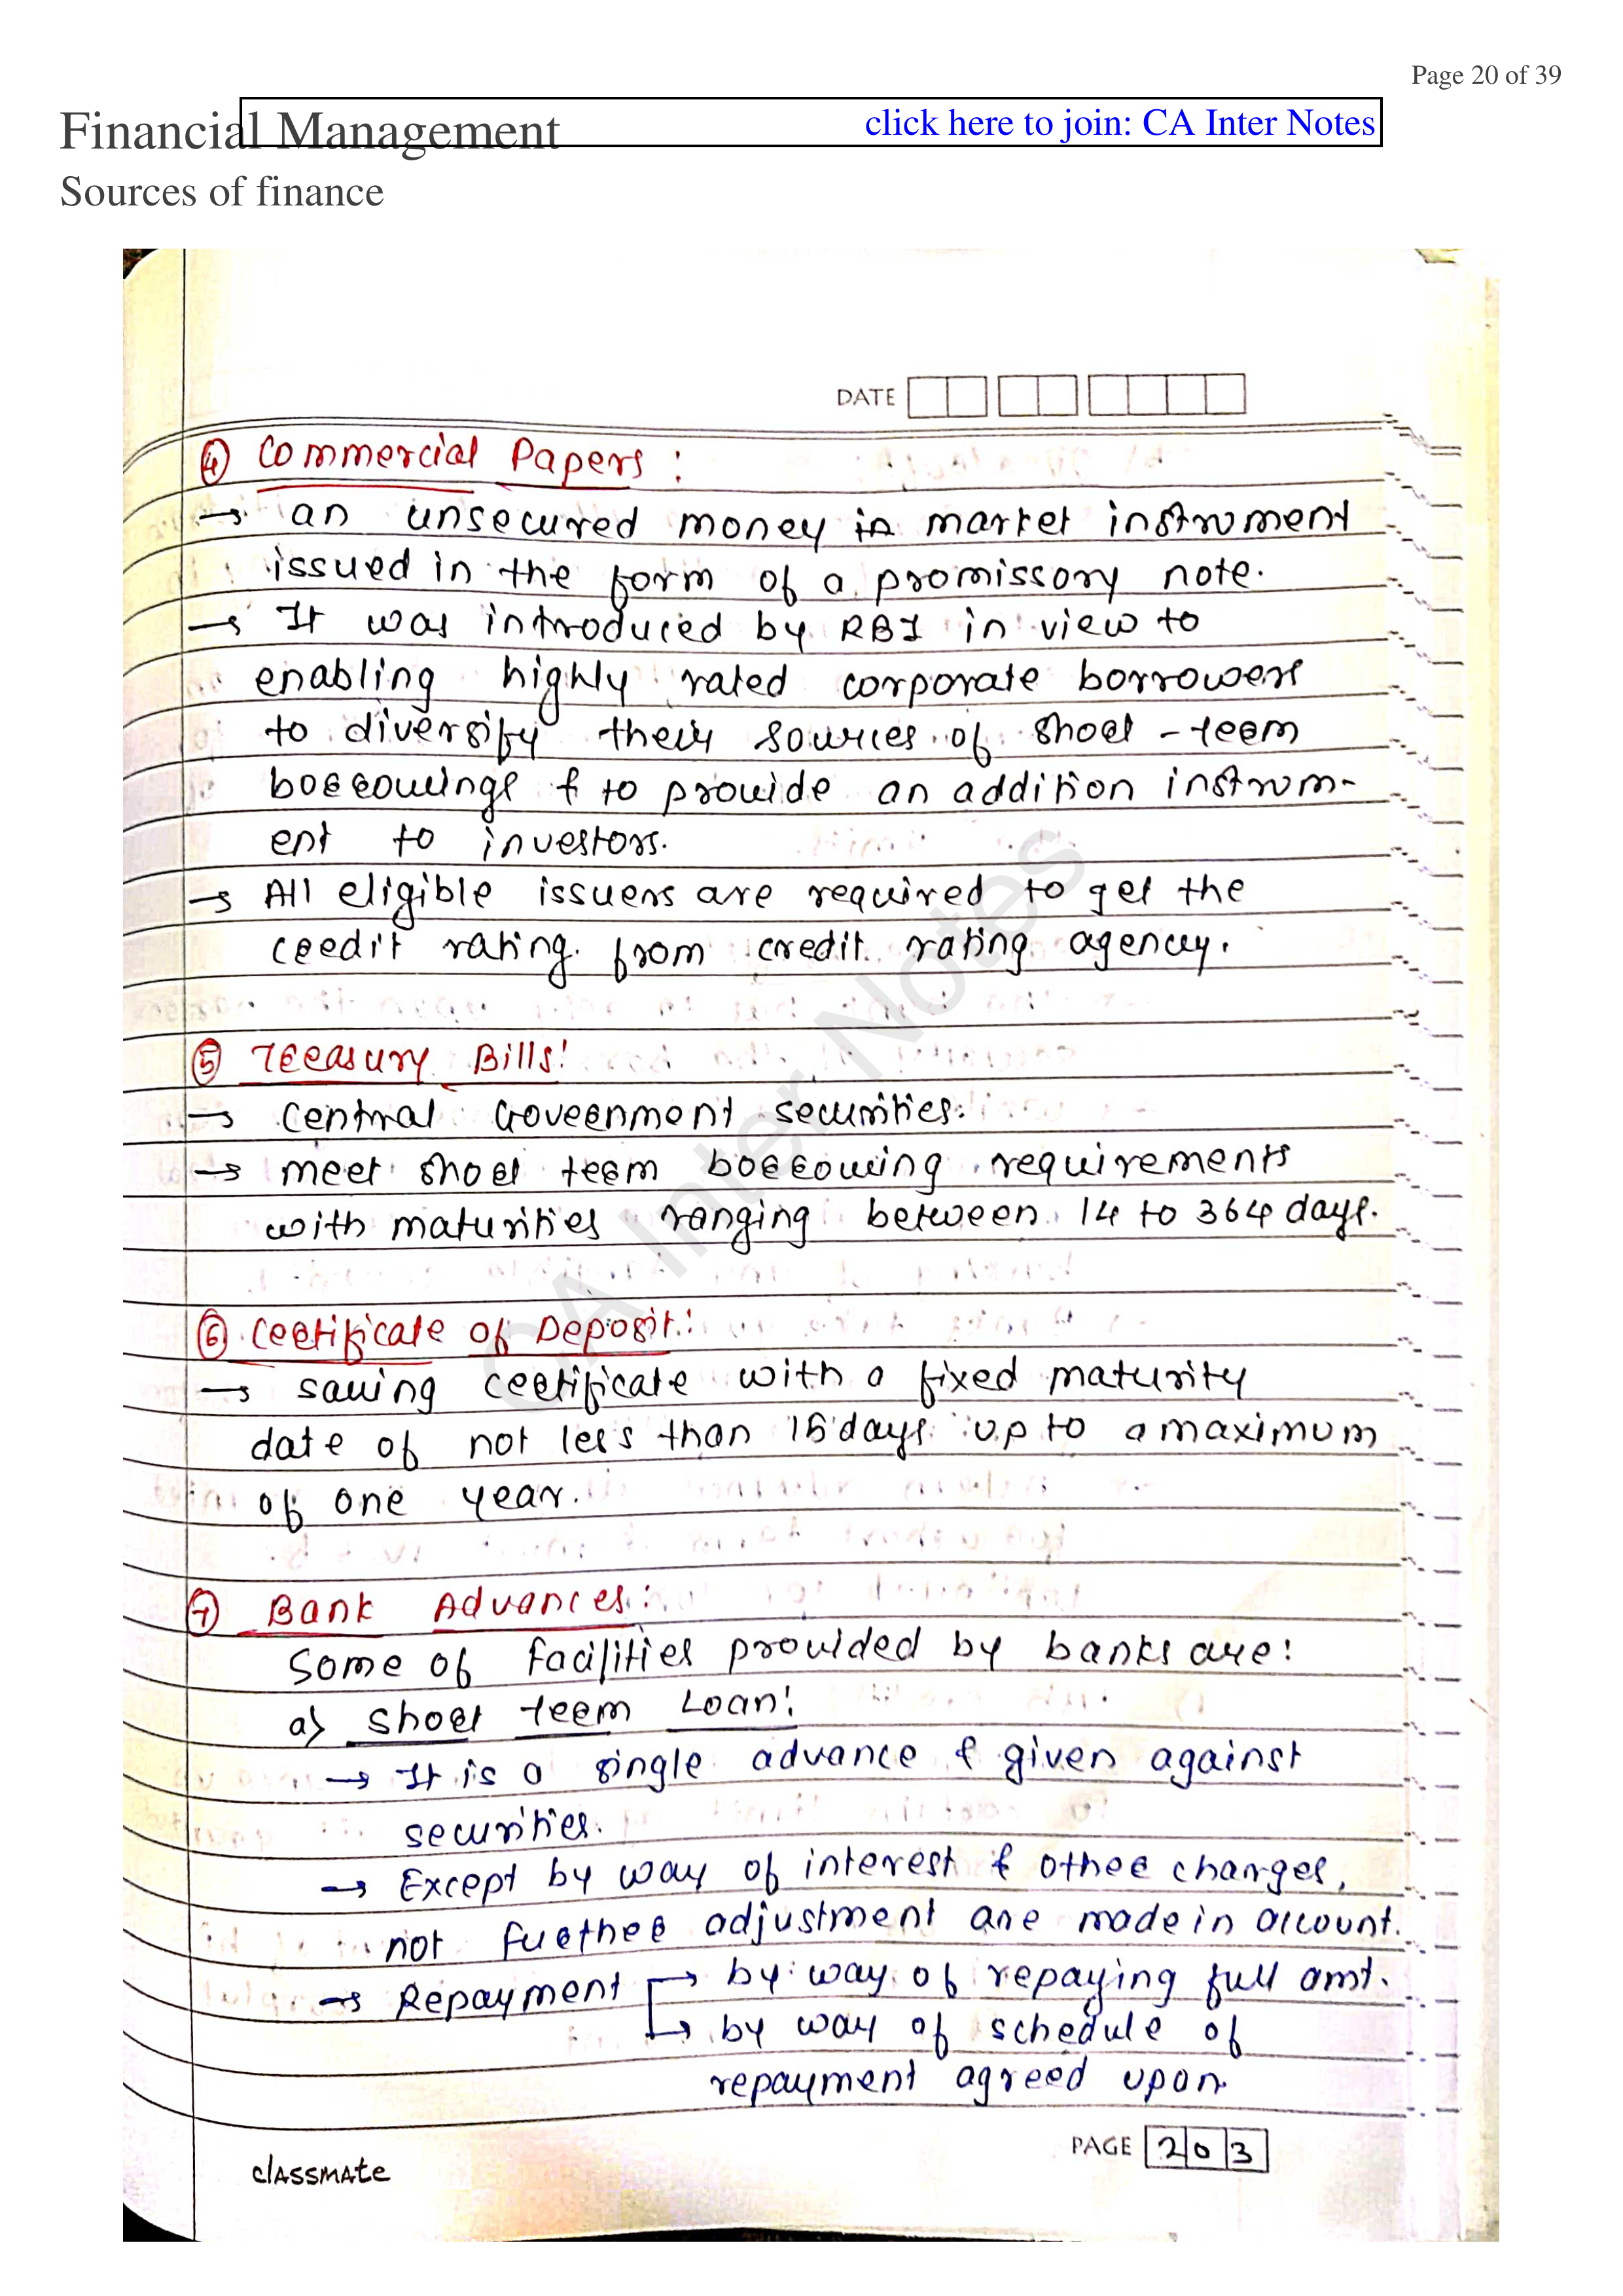 Page 20 of 39
Financial Management
click here to join: CA Inter Notes
Sources of finance
DATE
④ Commercial Papers :
→ an unsecured money in market instrument
issued in the form of a promissory note.
→ It was introduced by RBI in view to
enabling highly rated corporate borrowers
to diversify their sources of short-term
borrowings & to provide an addition instrum-
ent to investors.
→ All eligible issuers are required to get the
credit rating from credit rating agency.
⑤ Treasury Bills:
→ Central Government securities.
→ meet short term borrowing requirements
with maturities ranging between 14 to 364 days.
⑥ Certificate of Deposit:
→ saving certificate with a fixed maturity
date of not less than 15 days up to a maximum
of one year.
⑦ Bank Advances:
Some of facilities provided by banks are:
a) Short term Loan:
→ It is a single advance & given against
securities.
→ Except by way of interest & other charges,
not further adjustment are made in account.
→ Repayment → by way of repaying full amt.
→ by way of schedule of
repayment agreed upon.
PAGE 203
classmate
CA Inter Notes